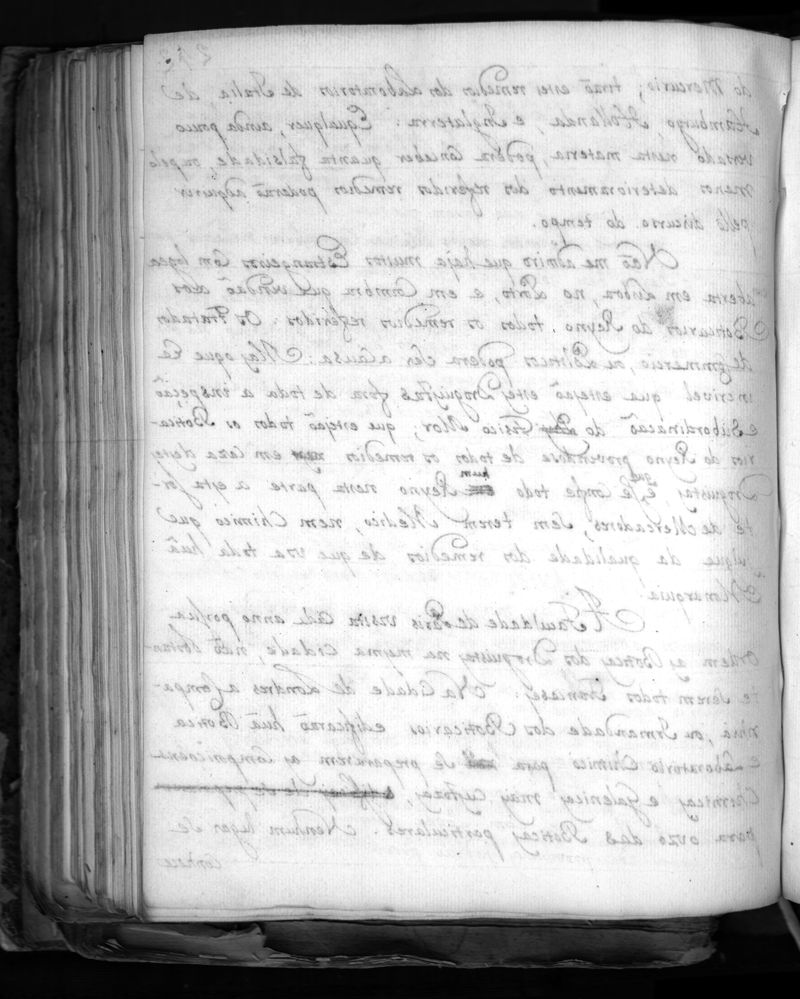 212
do Mercurio; tiraõ estes remedios dos Laboratorios de Italia, de
Hamburgo, Hollanda, e Inglaterra: Equalquer, ainda pouco
versado nesta materia, poderà conceber quanta falsidade, ou pelo
menos deterioramento dos referidos remedios poderaõ adquirir
pello discurso do tempo.
Naõ me admiro que haja muitos Estrangeiros com logea
aberta em Lisboa, no Porto, e em Coimbra que vendaõ aos
Boticarios do Reyno, todos os remedios referidos. Os Tratados
de Commercio ou Politicos poderà ser a causa: Mas o que he
incrivel que estejaõ estes Droguistas fora de toda a inspeçaõ
e Subordinaçaõ do Fisico Mor; que estejaõ todos os Botica-
rios do Reyno provendose de todos os remedios em caza destes
Droguistas, e que se confie todo hum Reyno nesta parte a esta sor-
te de Mercadores, sem terem Medico, nem Chimico que
julgue da qualidade dos remedios de que uza toda huã
Monarquia.
A Faculdade de Paris vesita cada anno por sua
ordem as Boticas dos Droguistas na mesma cidade, naõ obstan-
te serem todos Francezes: Na Cidade de Londres a Compa-
nhia, ou Irmandade dos Boticarios edificaraõ huã Botica
e Laboratorio Chimico para se prepararem as Compoziçoens
Chimicas e Galenicas mais custozas,
para o uzo das Boticas particulares. Nenhum lugar de